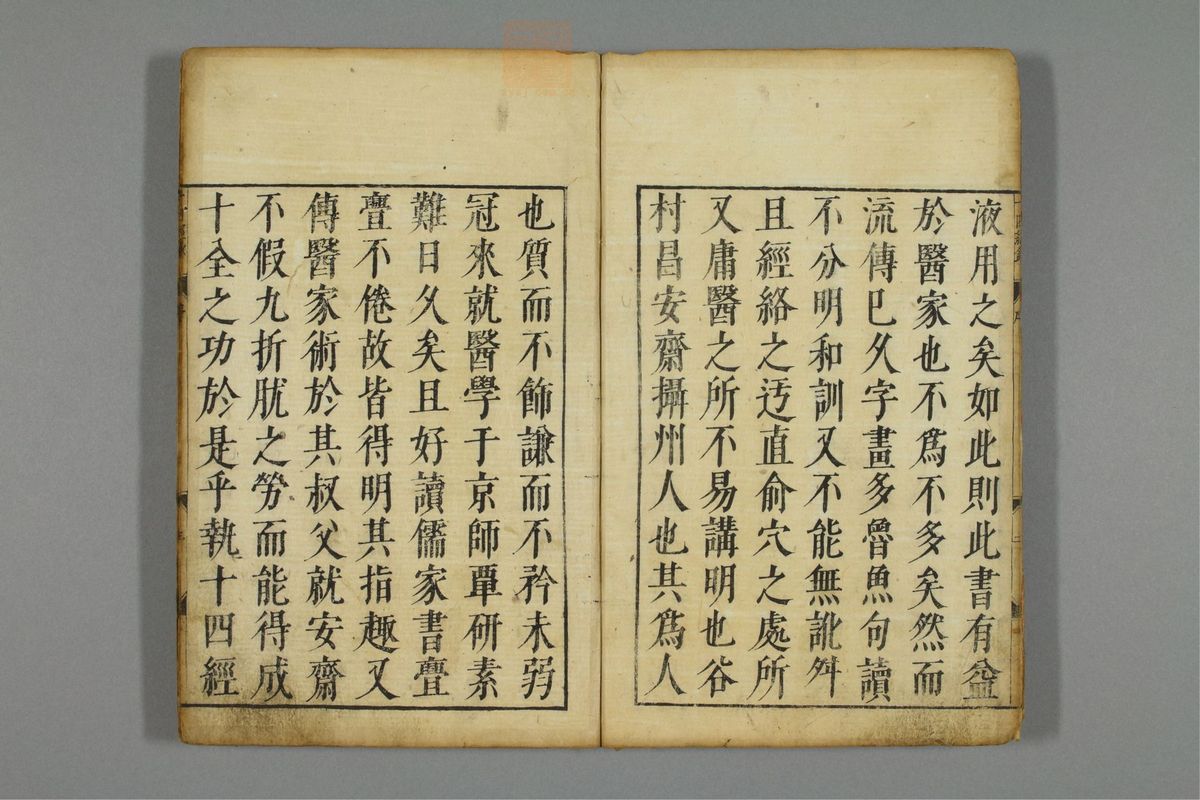 液用之矣如此則此書有益
於醫家也不爲不多矣然而
流傳巳久字畫多魯魚句讀
不分明和訓又不能無訛舛
且經絡之迃直俞穴之處所
又庸醫之所不易講明也谷
村昌安齋攝州人也其爲人
也質而不飾謙而不矜未弱
冠來就醫學于京師覃研素
難日久矣且好讀儒家書亹
亹不倦故皆得明其指趣又
傳醫家術於其叔父就安齋
不假九折肱之勞而能得成
十全之功於是乎執十四經